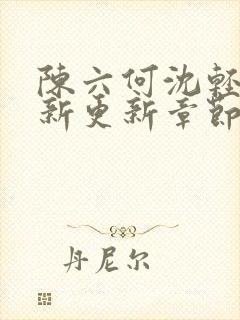 陳六何沈輕
新更新章節
丹尼尔